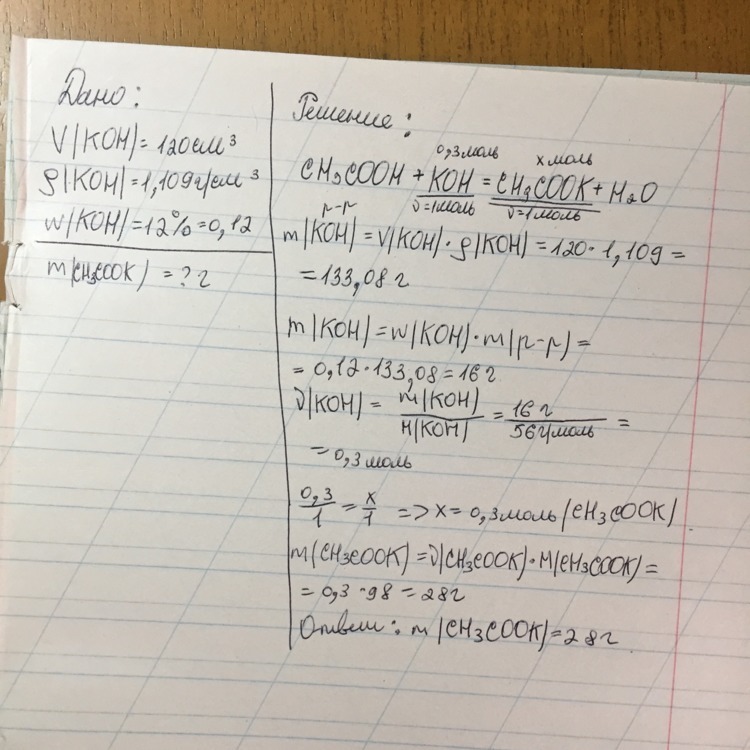 Дано:
V(KOH)=120см³
ρ(KOH)=1,109г/см³
w(KOH)=12%=0,12
m(CH₃COOK)=?г
Решение:
0,3моль xмоль
CH₃COOH+KOH=CH₃COOK+H₂O
ν=1моль ν=1моль
р-р
m(KOH)=V(KOH)·ρ(KOH)=120·1,109=
=133,08г
m(KOH)=w(KOH)·m(р-р)=
=0,12·133,08=16г
ν(KOH)=m(KOH)/M(KOH)=16г/56г/моль=
=0,3моль
0,3/1=x/1 =>x=0,3моль(CH₃COOK)
m(CH₃COOK)=ν(CH₃COOK)·M(CH₃COOK)=
=0,3·98=28г
Ответ: m(CH₃COOK)=28г